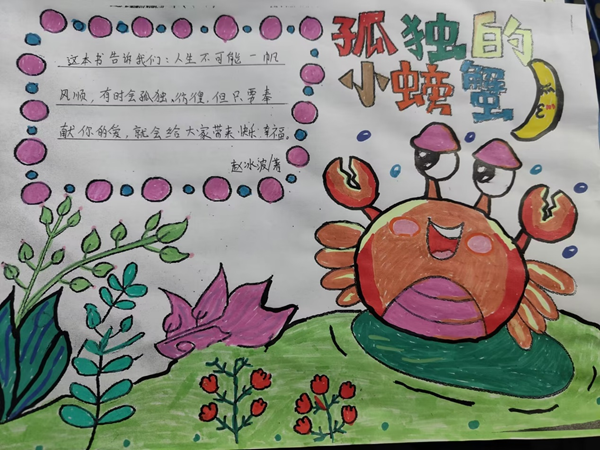 孤独的
小螃蟹
这本书告诉我们：人生不可能一帆
风顺，有时会孤独、彷徨，但只要奉
献你的爱，就会给大家带来快乐、幸福。
赵冰波/著